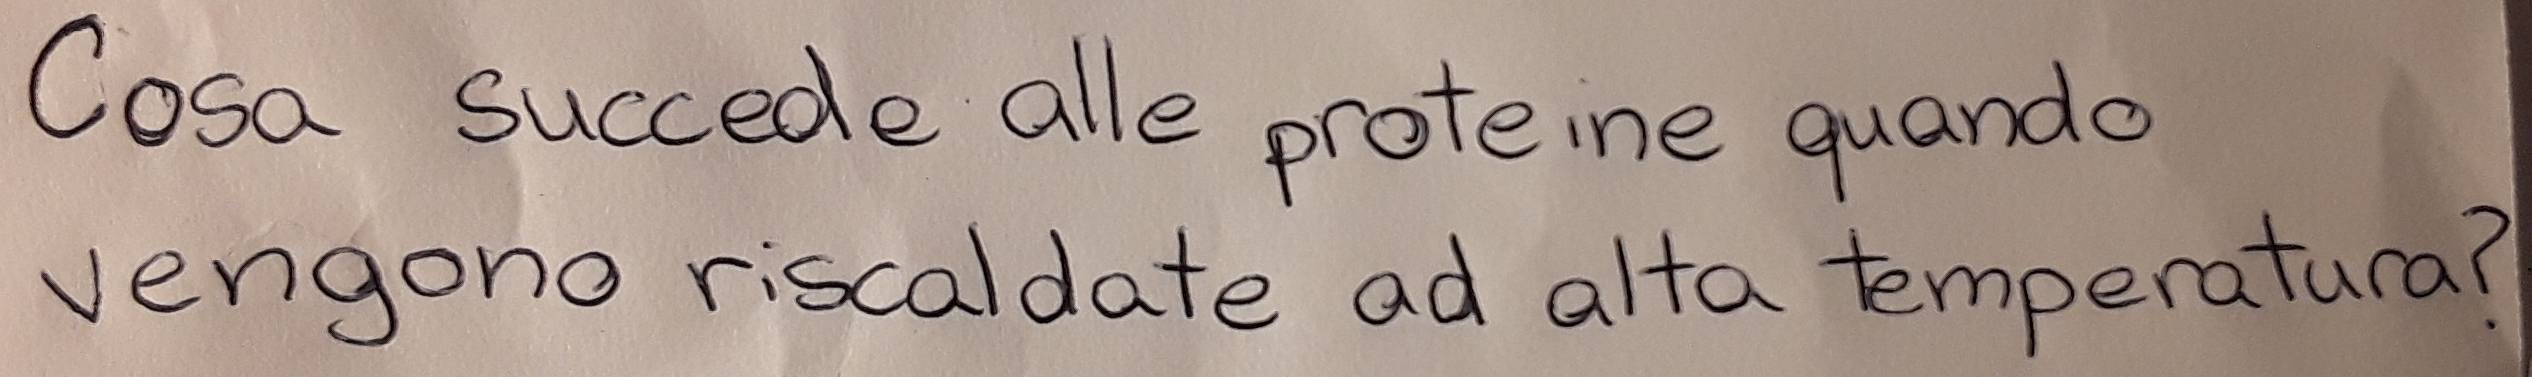 Cosa succede alle proteine quando
vengono riscaldate ad alta temperatura?